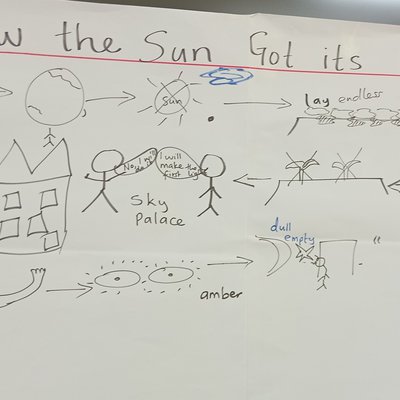 the Sun Got its
Sun
lay endless
I will
make the
first light
Sky
Palace
dull
empty
amber